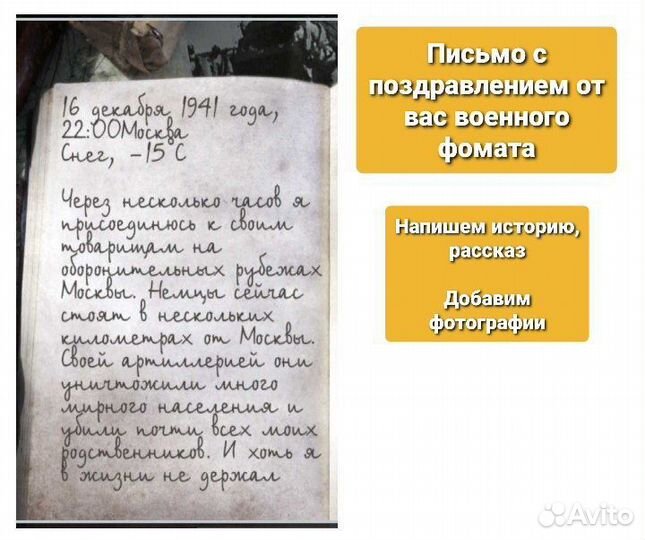 16 декабря 1941 года,
22:00Москва
Снег, -15 С
Через несколько часов я
присоединюсь к своим
товарищам на
оборонительных рубежах
Москвы. Немцы сейчас
стоят в нескольких
километрах от Москвы.
Своей артиллерией они
уничтожили много
мирного населения и
убили почти всех моих
родственников. И хоть я
в жизни не держал
Письмо с
поздравлением от
вас военного
фомата
Напишем историю,
рассказ
Добавим
фотографии
Avito